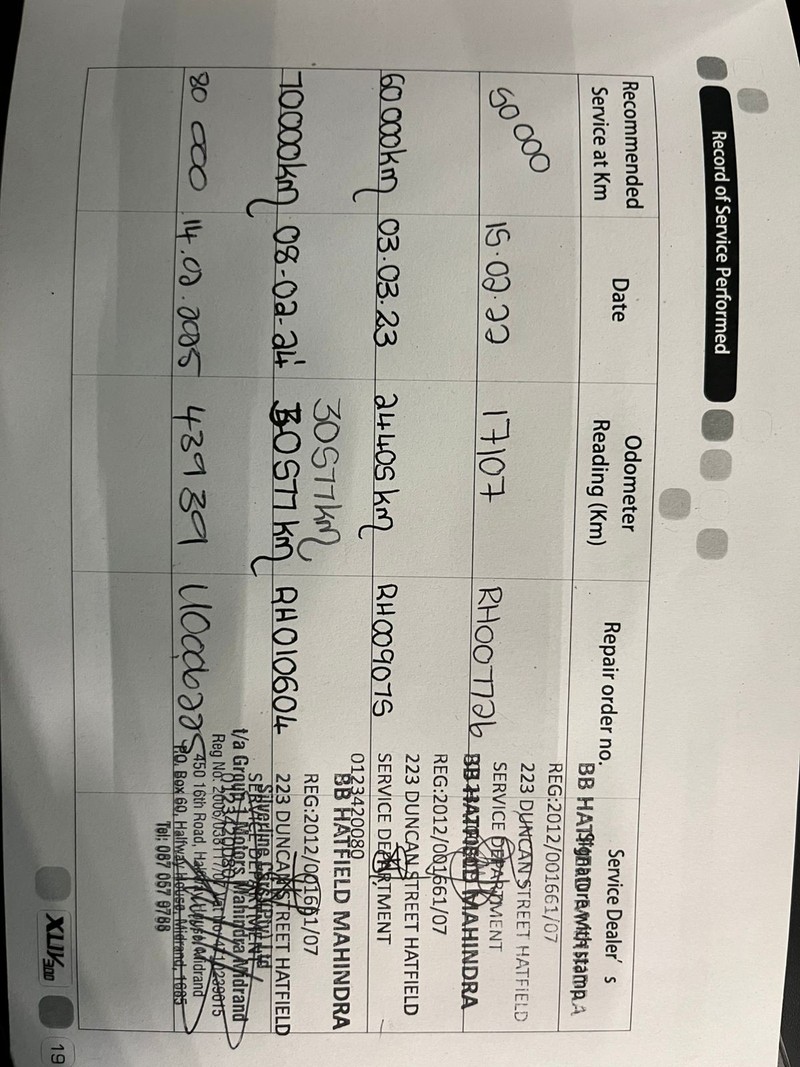 Record of Service Performed
Recommended Service at Km
Date
Odometer Reading (Km)
Repair order no.
Service Dealer's Signature with stamp
50 000 15.02.22 17107 RH007726
BB HATFIELD MAHINDRA
REG:2012/001661/07
223 DUNCAN STREET HATFIELD
SERVICE DEPARTMENT
60 000km 03.03.23 24405km RH009075
BB HATFIELD MAHINDRA
REG:2012/001661/07
223 DUNCAN STREET HATFIELD
SERVICE DEPARTMENT
0123420080
30577km
70000km 08-02-24 30577km RH010604
BB HATFIELD MAHINDRA
REG:2012/001661/07
223 DUNCAN STREET HATFIELD
SERVICE DEPARTMENT
0123420080
80 000 14.02.2025 43939
Silverline
t/a Group 1 Motors Mahindra Midrand
Reg No.
450 16th Road, Midrand
P.O. Box 60, Halfway House, Midrand, 1685
Tel: 087 057 9788
XUV300 19